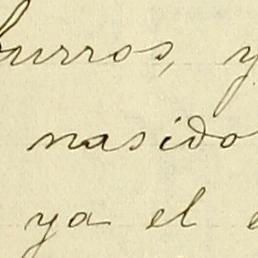 burros, y
nasido
ya el